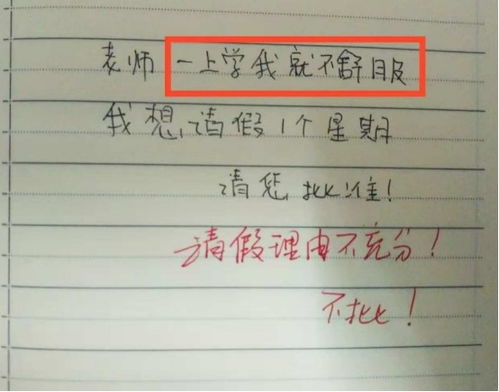 老师 一上学我就不舒服
我想请假1个星期
请您批准！
请假理由不充分！
不批！